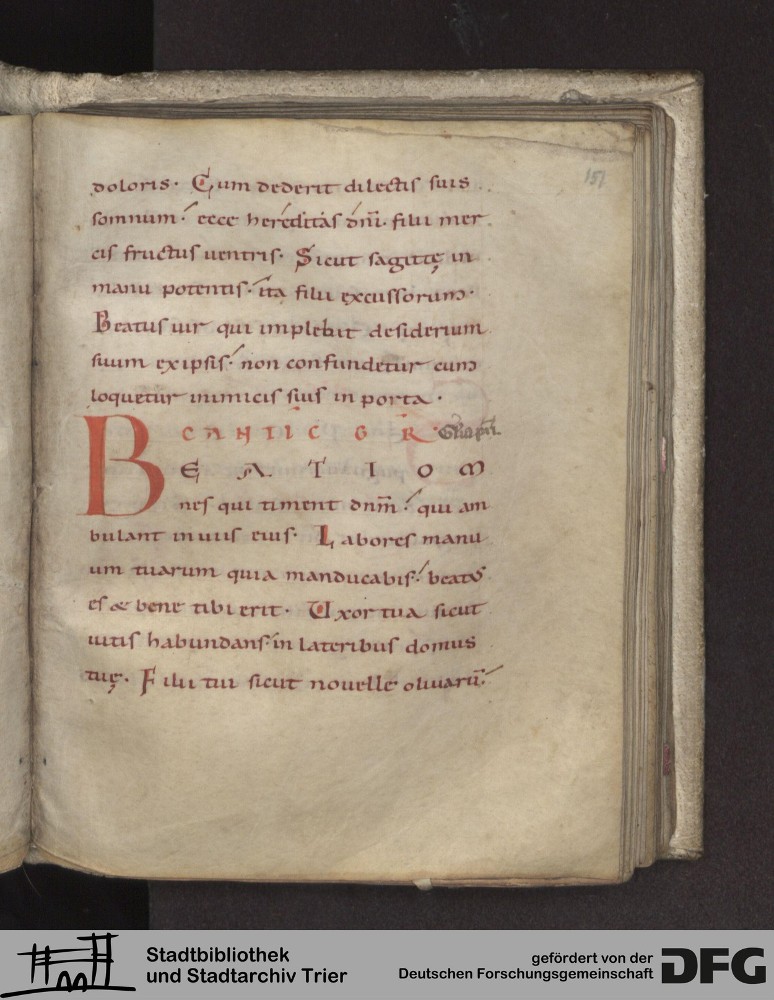 151
doloris. Cum dederit dilectis suis
somnum. ecce hereditas dnī. filii mer
cis fructus uentris. Sicut sagittę in
manu potentis. ita filii excussorum.
Beatus uir qui implebit desiderium
suum exipsis. non confundetur cum
loquetur inimicis suis in porta.
CANTIC G R
BEATI OM
nes qui timent dnm̄. qui am
bulant inuiis eius. Labores manu
um tuarum quia manducabis. beatus
es & bene tibi erit. Uxor tua sicut
uitis habundans. in lateribus domus
tuę. Filii tui sicut nouelle oliuarū.
Stadtbibliothek
und Stadtarchiv Trier
gefördert von der
Deutschen Forschungsgemeinschaft
DFG